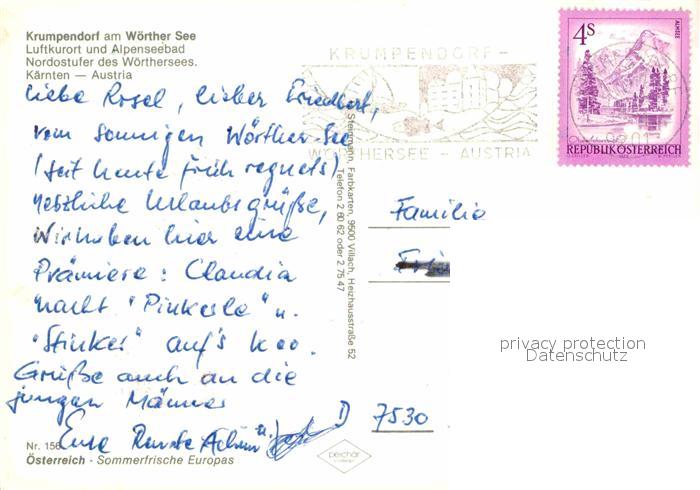 Krumpendorf am Wörther See
Luftkurort und Alpenseebad
Nordostufer des Wörthersees.
Kärnten — Austria
Liebe Rosel, lieber Friedbert,
vom sonnigen Wörther-See
(seit heute früh regnets)
herzliche Urlaubsgrüße,
Wir haben hier eine
Prämiere: Claudia
macht "Pinkerle" u.
"Stinker" auf's Kloo.
Grüße auch an die
jungen Männer
Eure Renate Achim u.
Nr. 156
Österreich - Sommerfrische Europas
KRUMPENDORF -
WÖRTHERSEE - AUSTRIA
4S
ALMSEE
REPUBLIK ÖSTERREICH
Steigmann, Farbkarten, 9500 Villach, Heizhausstraße 52
Telefon 2 80 62 oder 2 75 47
Familie
D 7530
privacy protection
Datenschutz